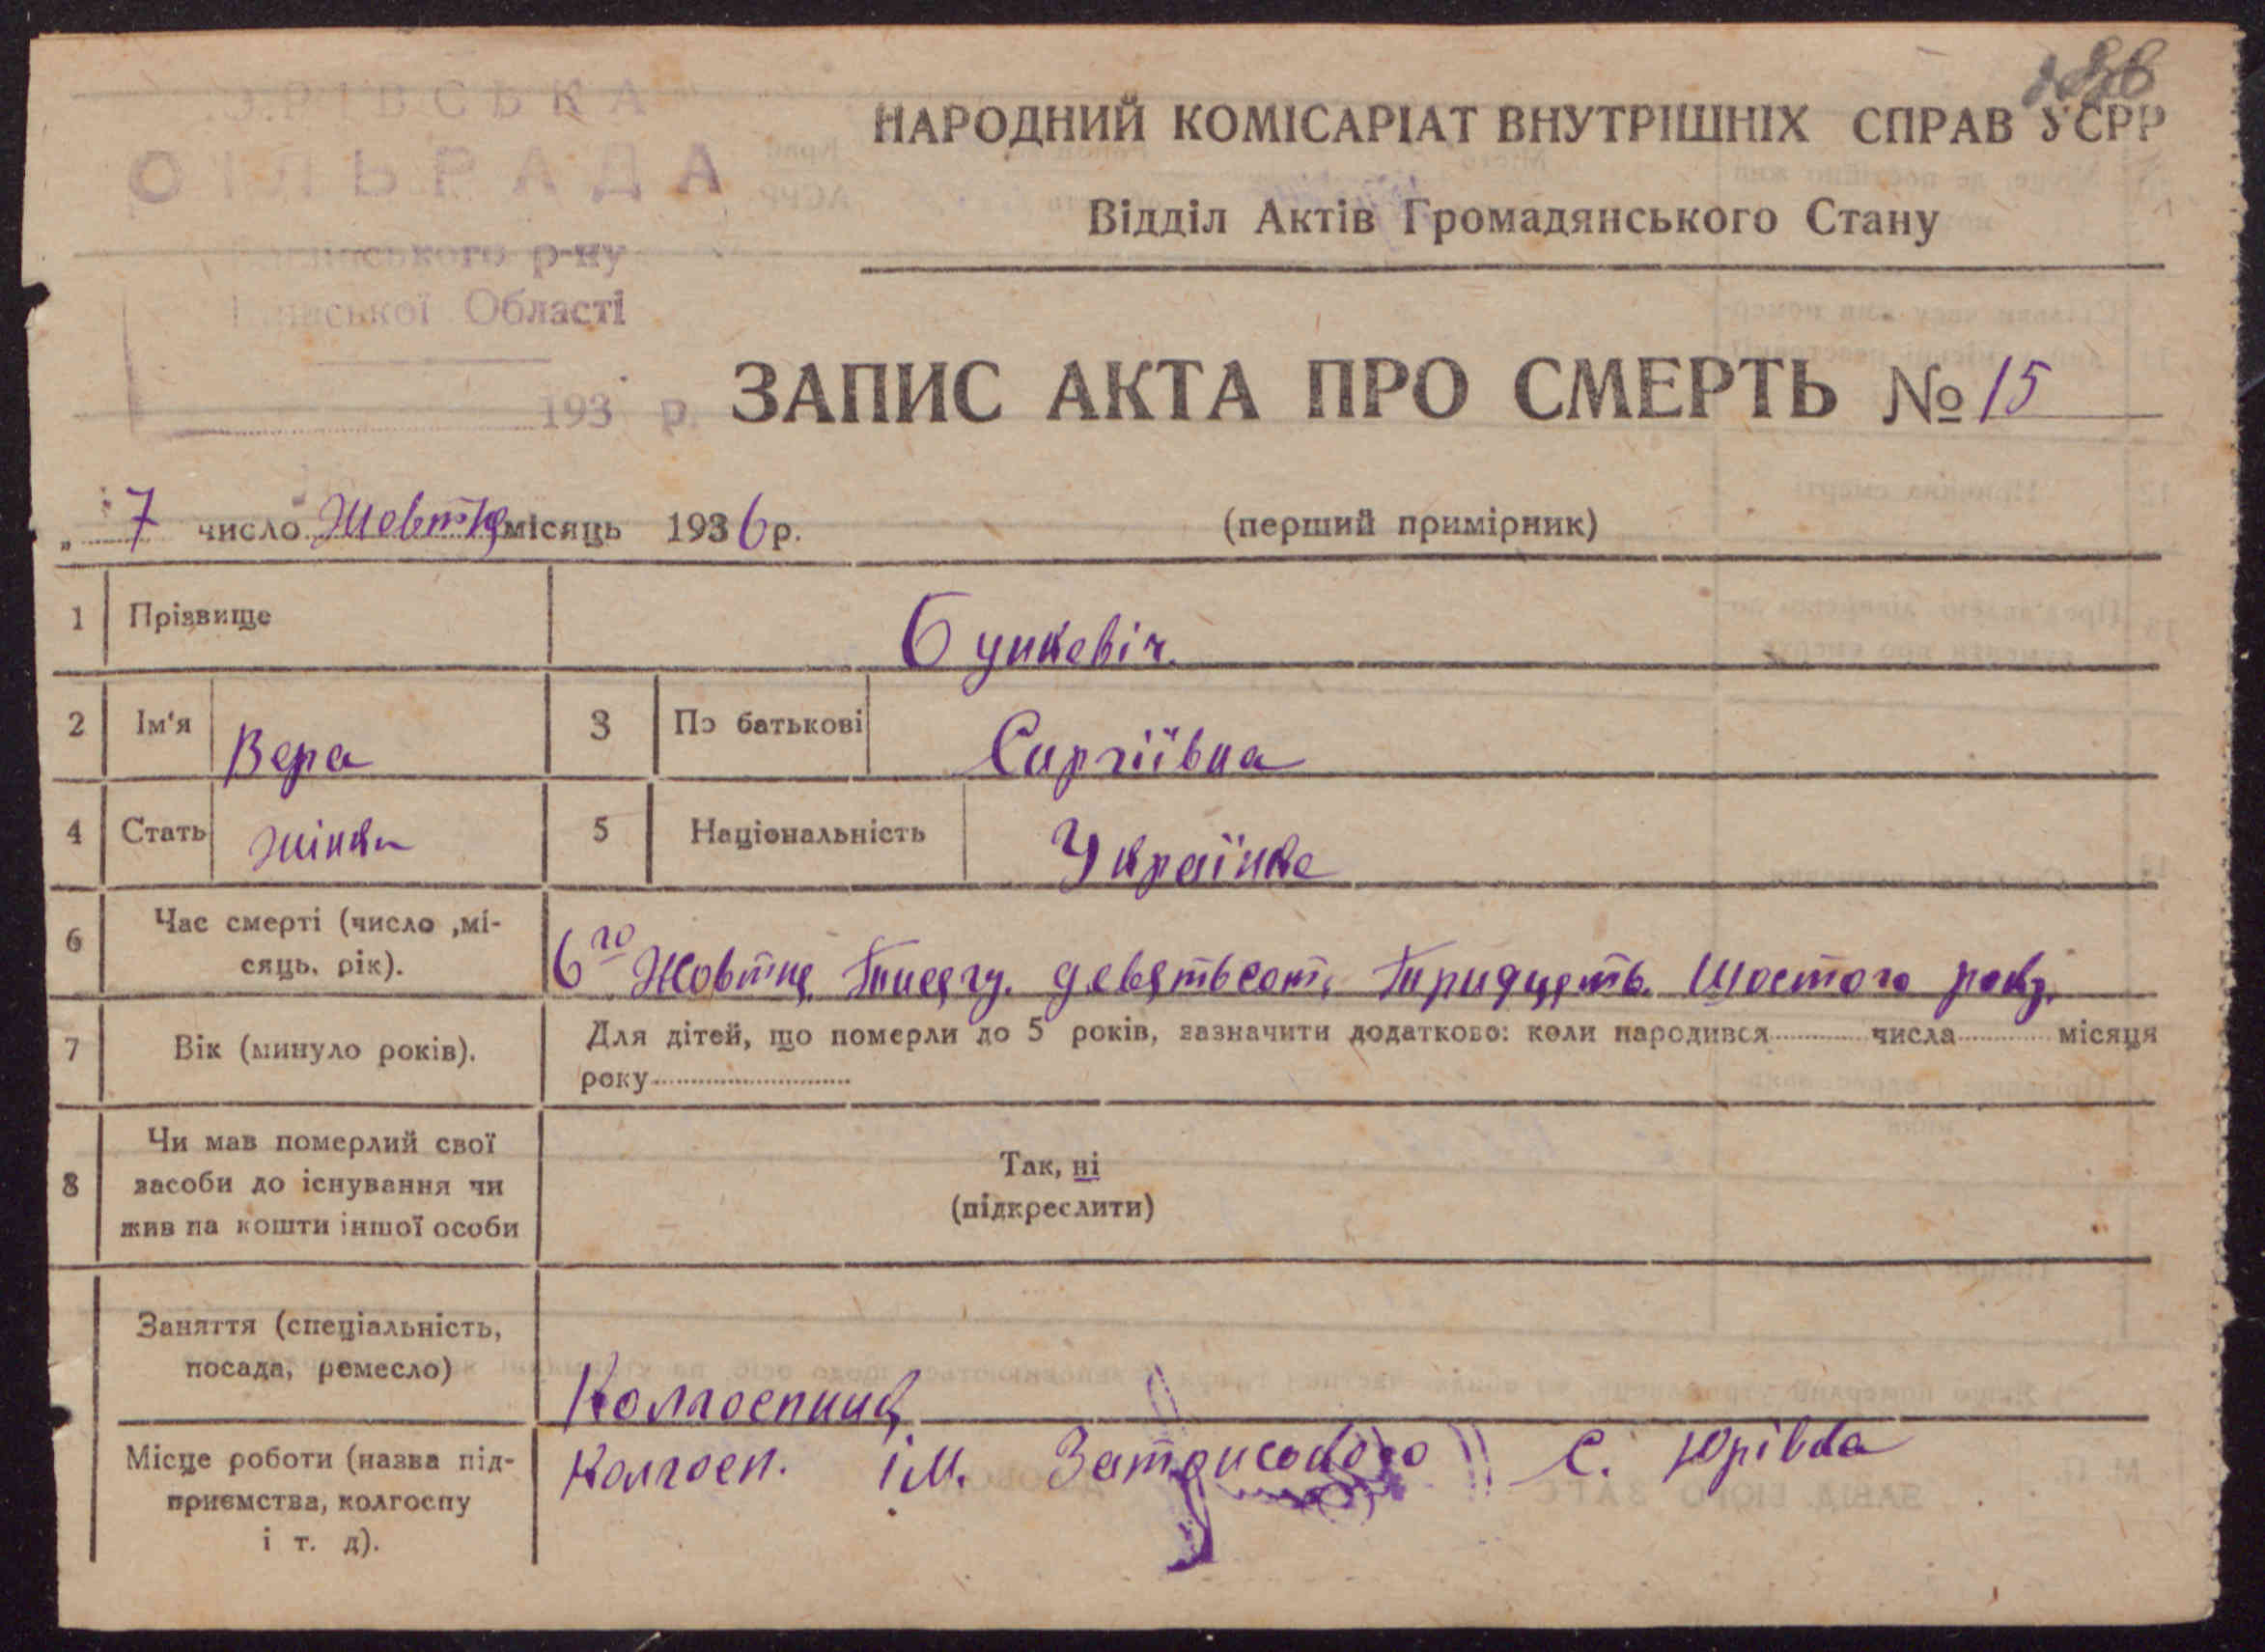 СІЛЬРАДА
р-ну
Області
193 р.
НАРОДНИЙ КОМІСАРІАТ ВНУТРІШНІХ СПРАВ УСРР
Відділ Актів Громадянського Стану
ЗАПИС АКТА ПРО СМЕРТЬ № 15
„ 7 число Жовтня місяць 1936 р.
(перший примірник)
1 Прізвище Бункевіч.
2 Ім'я Вера 3 По батькові Сиргіївна
4 Стать жінка 5 Національність Українка
6 Час смерті (число ,мі-
сяць, рік).
6го Жовтня Тисячу. девятьсот, тридцять. Шостого року.
7 Вік (минуло років).
Для дітей, що померли до 5 років, зазначити додатково: коли народився числа місяця
року
8 Чи мав померлий свої
засоби до існування чи
жив на кошти іншої особи
Так, ні
(підкреслити)
Заняття (спеціальність,
посада, ремесло)
Колгоспниця
Місце роботи (назва під-
приємства, колгоспу
і т. д).
Колгосп. ім. С. Юрівка